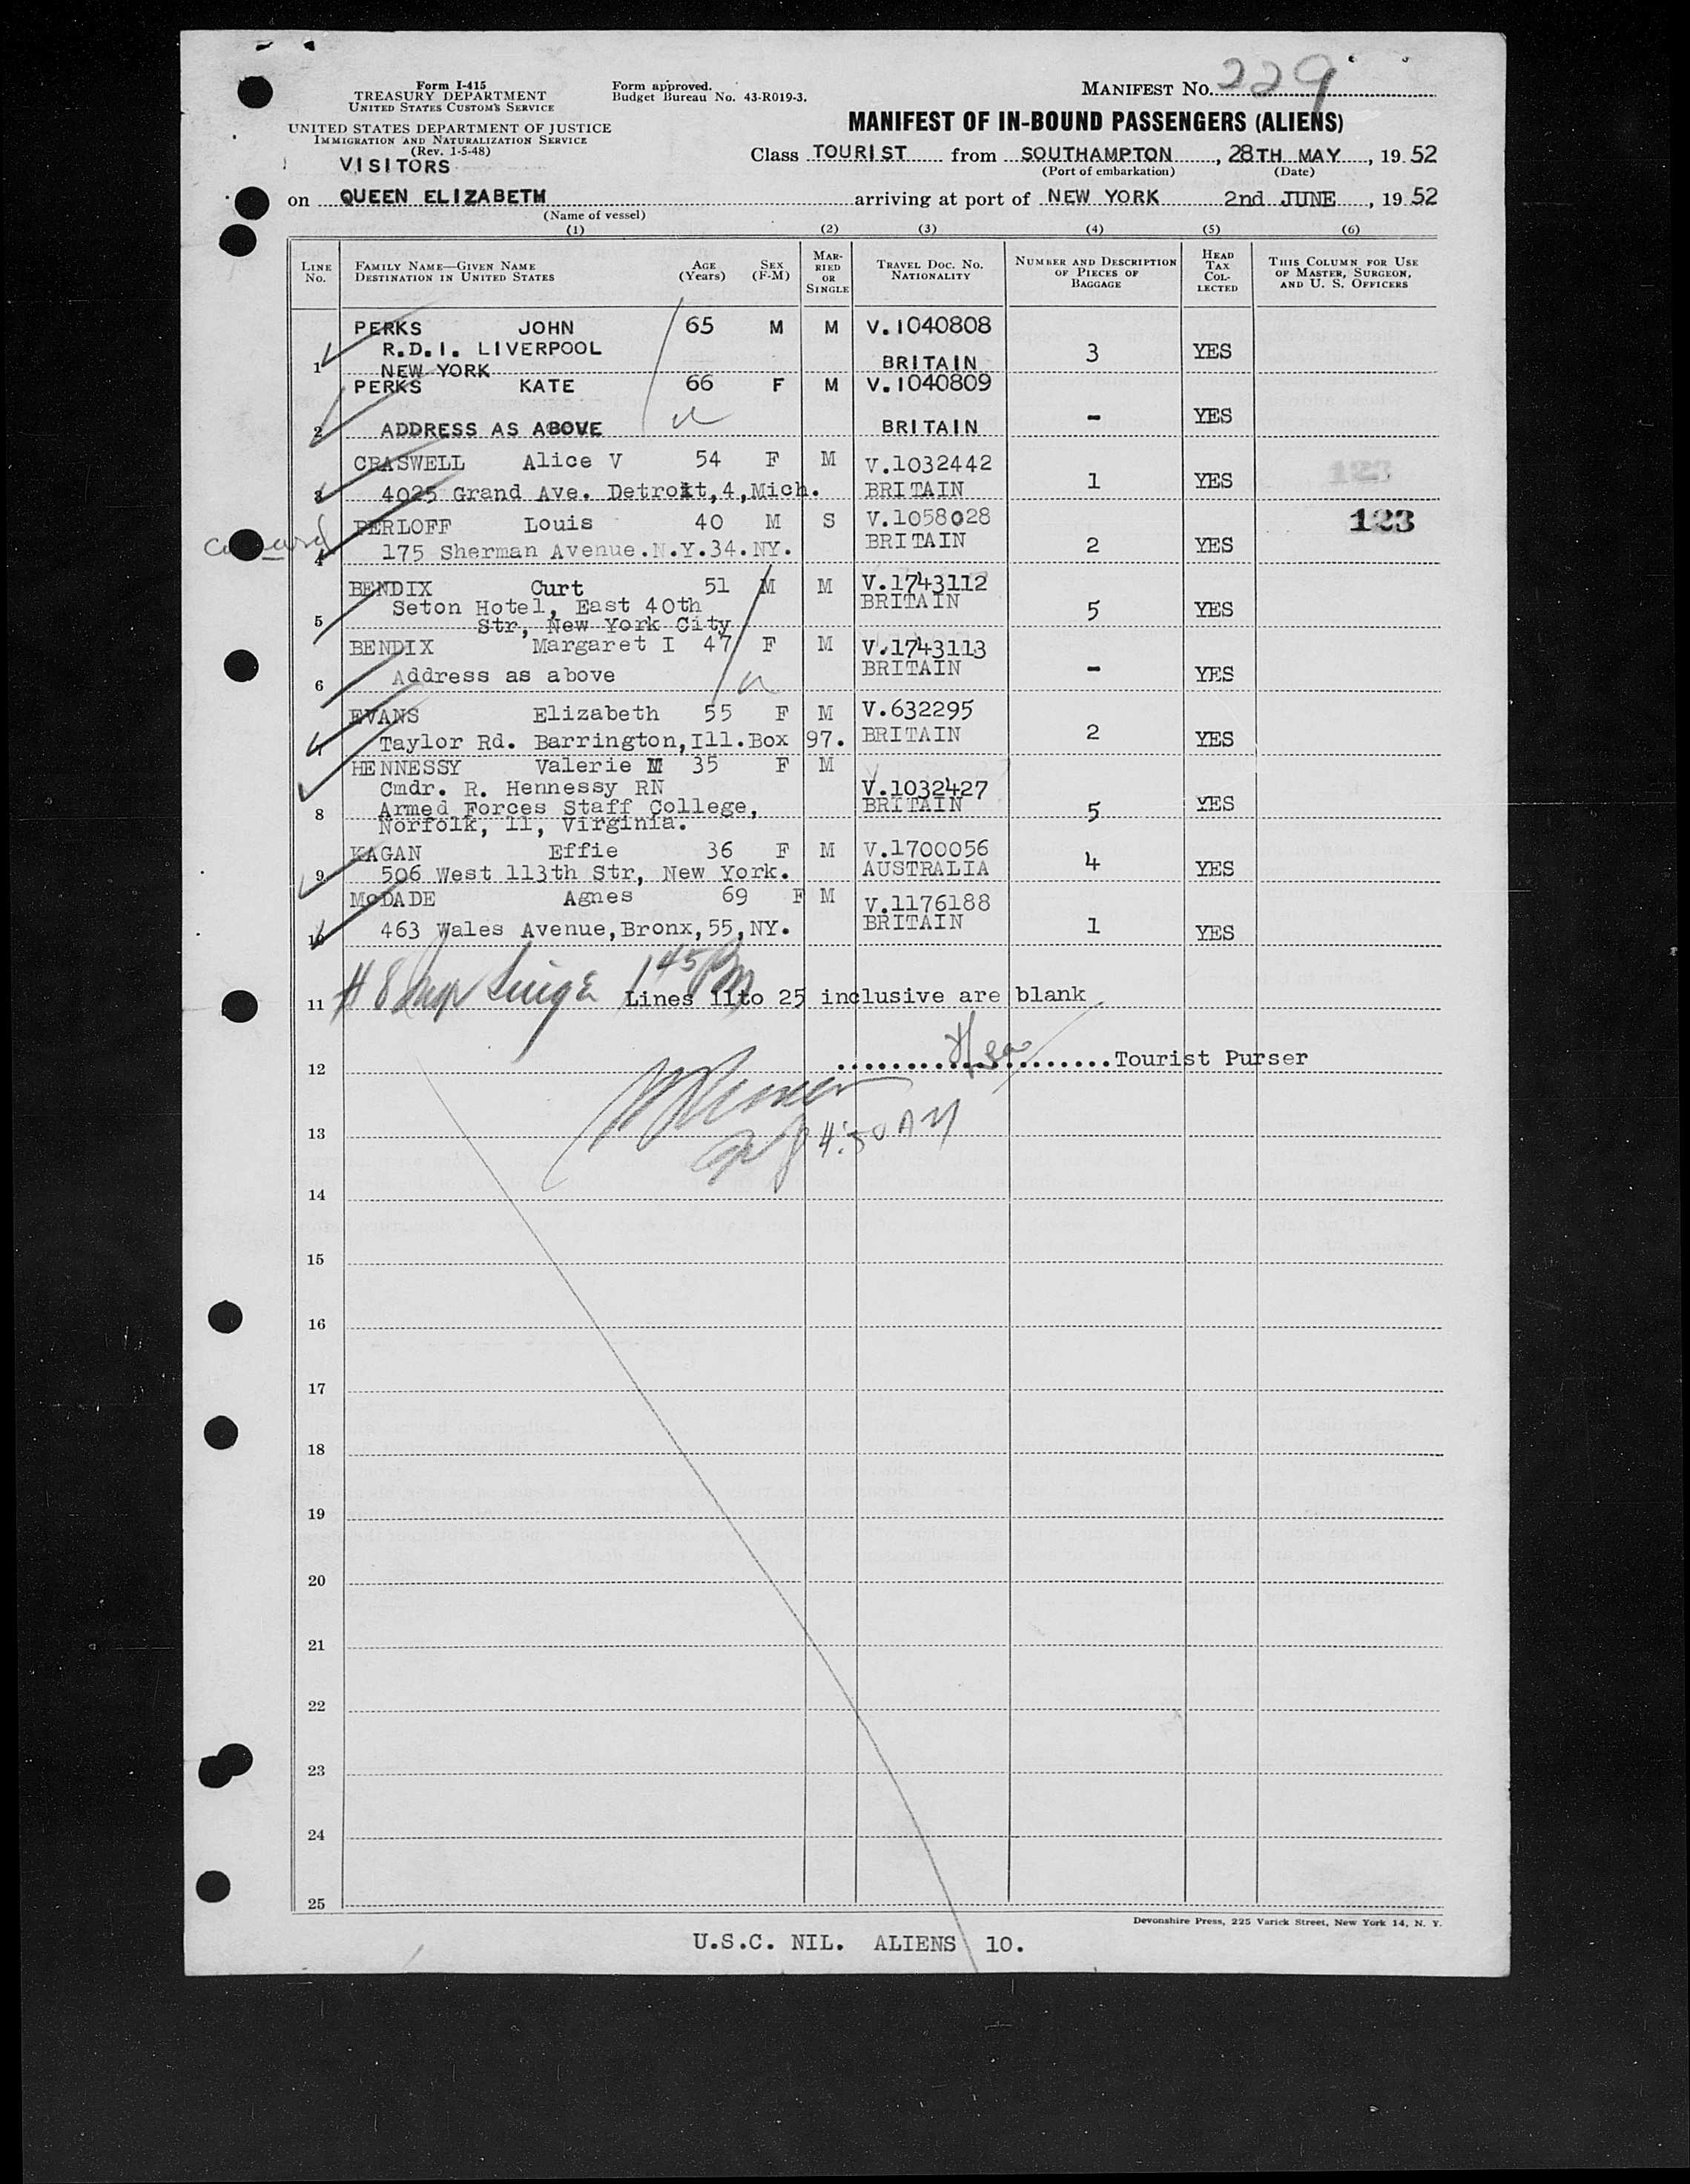 Form I-415
TREASURY DEPARTMENT
UNITED STATES CUSTOMS SERVICE
UNITED STATES DEPARTMENT OF JUSTICE
IMMIGRATION AND NATURALIZATION SERVICE
(Rev. 1-5-48)
VISITORS
Form approved.
Budget Bureau No. 43-R019-3.
MANIFEST No. 229
MANIFEST OF IN-BOUND PASSENGERS (ALIENS)
Class TOURIST from SOUTHAMPTON, 28TH MAY, 19 52
(Port of embarkation) (Date)
on QUEEN ELIZABETH arriving at port of NEW YORK 2nd JUNE, 19 52
(Name of vessel)
(1) (2) (3) (4) (5) (6)
LINE No. FAMILY NAME—GIVEN NAME DESTINATION IN UNITED STATES AGE (Years) SEX (F-M) MARRIED OR SINGLE TRAVEL DOC. NO. NATIONALITY NUMBER AND DESCRIPTION OF PIECES OF BAGGAGE HEAD TAX COLLECTED THIS COLUMN FOR USE OF MASTER, SURGEON, AND U. S. OFFICERS
PERKS JOHN 65 M M V.1040808
R.D.I. LIVERPOOL
1 NEW YORK BRITAIN 3 YES
PERKS KATE 66 F M V.1040809
2 ADDRESS AS ABOVE BRITAIN - YES
CRASWELL Alice V 54 F M V.1032442
3 4025 Grand Ave. Detroit,4,Mich. BRITAIN 1 YES 123
PERLOFF Louis 40 M S V.1058028 123
4 175 Sherman Avenue.N.Y.34.NY. BRITAIN 2 YES
BENDIX Curt 51 M M V.1743112
Seton Hotel, East 40th BRITAIN
5 Str, New York City 5 YES
BENDIX Margaret I 47 F M V.1743113
6 Address as above BRITAIN - YES
EVANS Elizabeth 55 F M V.632295
7 Taylor Rd. Barrington,Ill.Box 97. BRITAIN 2 YES
HENNESSY Valerie M 35 F M
Cmdr. R. Hennessy RN V.1032427
8 Armed Forces Staff College, BRITAIN 5 YES
Norfolk, 11, Virginia.
KAGAN Effie 36 F M V.1700056
9 506 West 113th Str, New York. AUSTRALIA 4 YES
McDADE Agnes 69 F M V.1176188
10 463 Wales Avenue,Bronx,55,NY. BRITAIN 1 YES
#8 1 45 PM
11 Lines 11to 25 inclusive are blank
12 ....................Tourist Purser
13 4:50 AM
14
15
16
17
18
19
20
21
22
23
24
25
Devonshire Press, 225 Varick Street, New York 14, N. Y.
U.S.C. NIL. ALIENS 10.